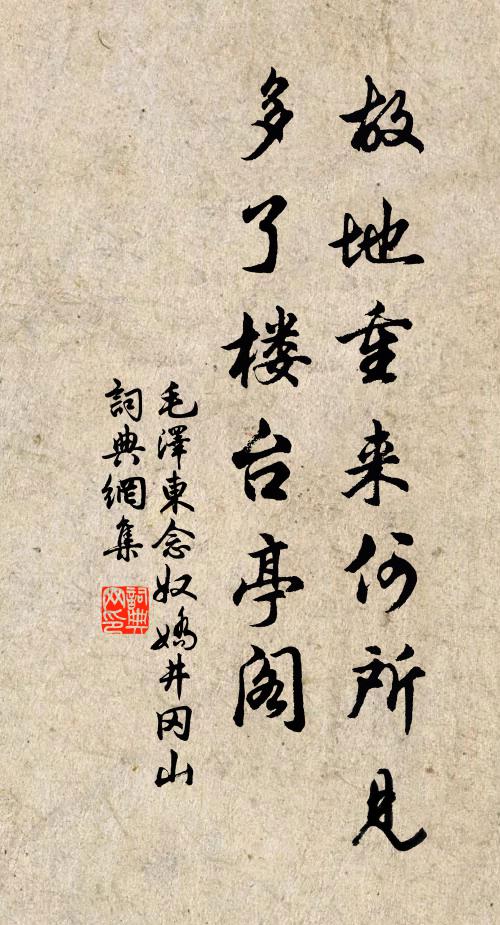 故地重来何所见
多了楼台亭阁
毛澤東念奴嬌井冈山
詞典網集
詞典网印